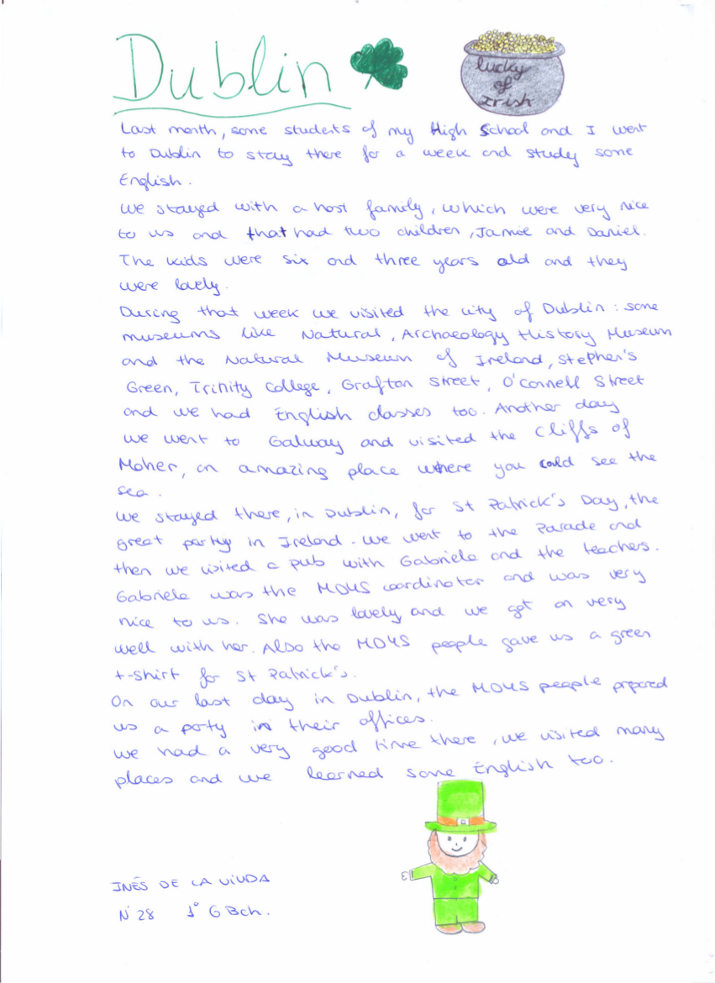 Dublin
lucky
of
Irish
Last month, some students of my High School and I went
to Dublin to stay there for a week and study some
English.
We stayed with a host family, which were very nice
to us and that had two children, Jamie and Daniel.
The kids were six and three years old and they
were lovely.
During that week we visited the city of Dublin: some
museums like Natural, Archaeology History Museum
and the Natural Museum of Ireland, Stephen's
Green, Trinity College, Grafton Street, O'Connell Street
and we had English classes too. Another day
we went to Galway and visited the Cliffs of
Moher, an amazing place where you could see the
sea.
We stayed there, in Dublin, for St Patrick's Day, the
great party in Ireland. We went to the Parade and
then we visited a pub with Gabriele and the teachers.
Gabriele was the MOYS coordinator and was very
nice to us. She was lovely and we got on very
well with her. Also the MOYS people gave us a green
t-shirt for St Patrick's.
On our last day in Dublin, the MOYS people prepared
us a party in their offices.
We had a very good time there, we visited many
places and we learned some English too.
INÉS DE LA VIUDA
Nº 28 1º G Bch.